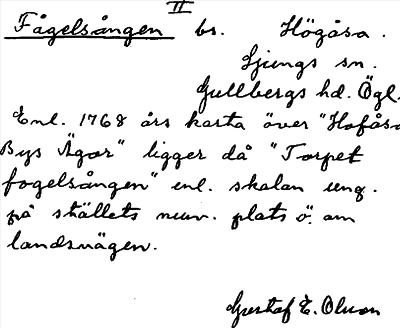 II
Fågelsången bs. Högåsa.
Ljungs sn.
Gullbergs hd. Ögl.
Enl. 1768 års karta över "Hofåsa
Bys Ägor" ligger då "Torpet
fogelsången" enl. skalan ung.
på ställets nuv. plats ö. om
landsvägen.
Gustaf E. Olsson